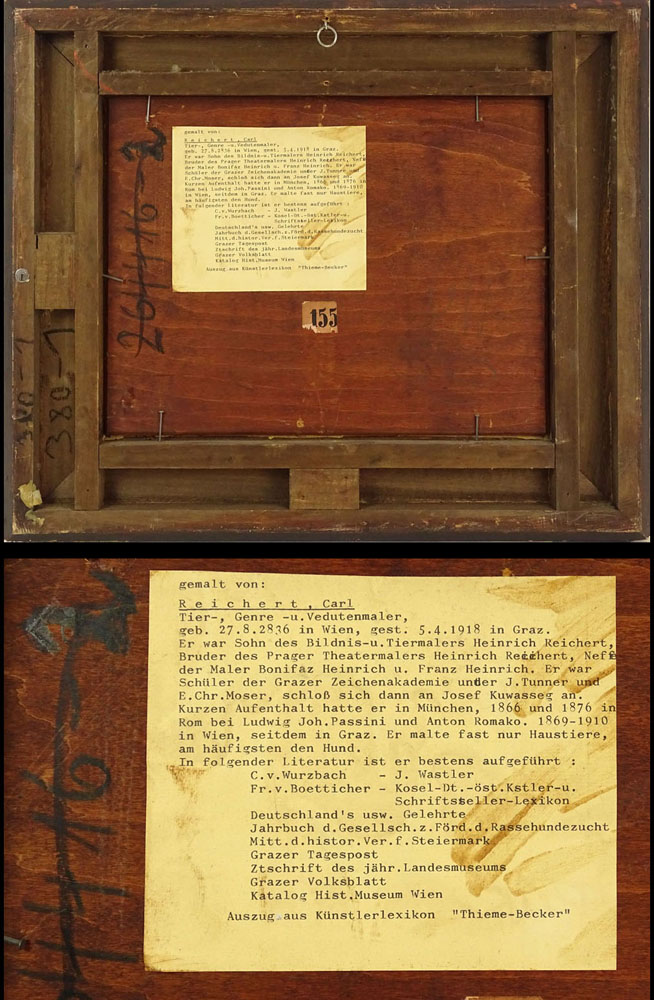 gemalt von:
Reichert, Carl
Tier-, Genre -u.Vedutenmaler,
geb. 27.8.2836 in Wien, gest. 5.4.1918 in Graz.
Er war Sohn des Bildnis-u.Tiermalers Heinrich Reichert,
Bruder des Prager Theatermalers Heinrich Reichert, Neffe
der Maler Bonifaz Heinrich u. Franz Heinrich. Er war
Schüler der Grazer Zeichenakademie under J.Tunner und
E.Chr.Moser, schloß sich dann an Josef Kuwasseg an.
Kurzen Aufenthalt hatte er in München, 1866 und 1876 in
Rom bei Ludwig Joh.Passini und Anton Romako. 1869-1910
in Wien, seitdem in Graz. Er malte fast nur Haustiere,
am häufigsten den Hund.
In folgender Literatur ist er bestens aufgeführt :
C.v.Wurzbach - J. Wastler
Fr.v.Boetticher - Kosel-Dt.-öst.Kstler-u.
Schriftsteller-Lexikon
Deutschland's usw. Gelehrte
Jahrbuch d.Gesellsch.z.Förd.d.Rassehundezucht
Mitt.d.histor.Ver.f.Steiermark
Grazer Tagespost
Ztschrift des jähr.Landesmuseums
Grazer Volksblatt
Katalog Hist.Museum Wien
Auszug aus Künstlerlexikon "Thieme-Becker"
155
26446-2
380-1
380-1